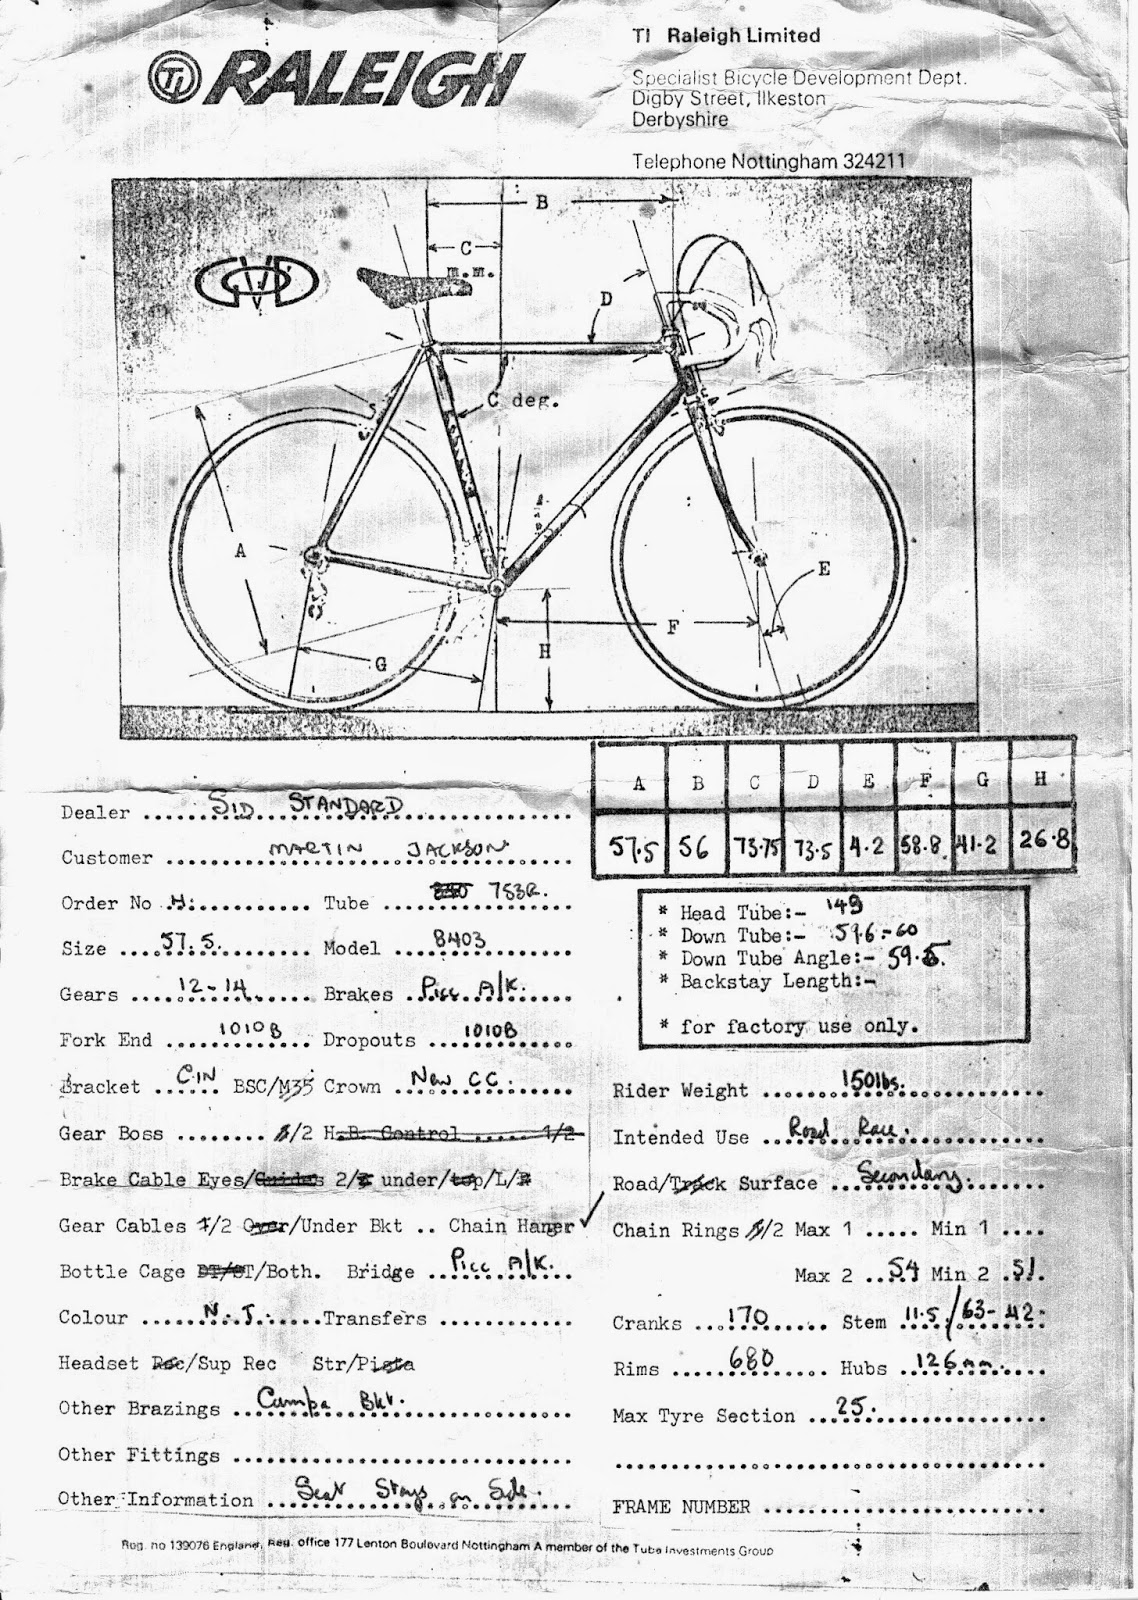 TI RALEIGH
TI Raleigh Limited
Specialist Bicycle Development Dept.
Digby Street, Ilkeston
Derbyshire
Telephone Nottingham 324211
B
C
m.m.
D
C deg.
A
E
F
G
H
A B C D E F G H
57.5 56 73.75 73.5 4.2 58.8 41.2 26.8
Dealer SID STANDARD
Customer MARTIN JACKSON
Order No H. Tube 753R.
Size 57.5. Model 8403
Gears 12-14 Brakes Picc A/K.
Fork End 1010B Dropouts 1010B
Bracket CIN BSC/M35 Crown New CC.
Gear Boss 1/2 H.B. Control 1/2
Brake Cable Eyes/Guides 2/3 under/top/L/R
Gear Cables 1/2 Over/Under Bkt .. Chain Hanger ✓
Bottle Cage DT/ST/Both. Bridge Picc A/K.
Colour N.J. Transfers
Headset Rec/Sup Rec Str/Pista
Other Brazings Campa Bkt.
Other Fittings
Other Information Seat Stays on Side.
* Head Tube:- 149
* Down Tube:- 59.6-60
* Down Tube Angle:- 59.5.
* Backstay Length:-
* for factory use only.
Rider Weight 150lbs.
Intended Use Road Race.
Road/Track Surface Secondary.
Chain Rings 1/2 Max 1 ..... Min 1 ....
Max 2 ..54 Min 2 .51.
Cranks 170 Stem 11.5/63-42.
Rims 680 Hubs 126mm.
Max Tyre Section 25.
FRAME NUMBER
Reg. no 139076 England, Reg. office 177 Lenton Boulevard Nottingham A member of the Tube Investments Group